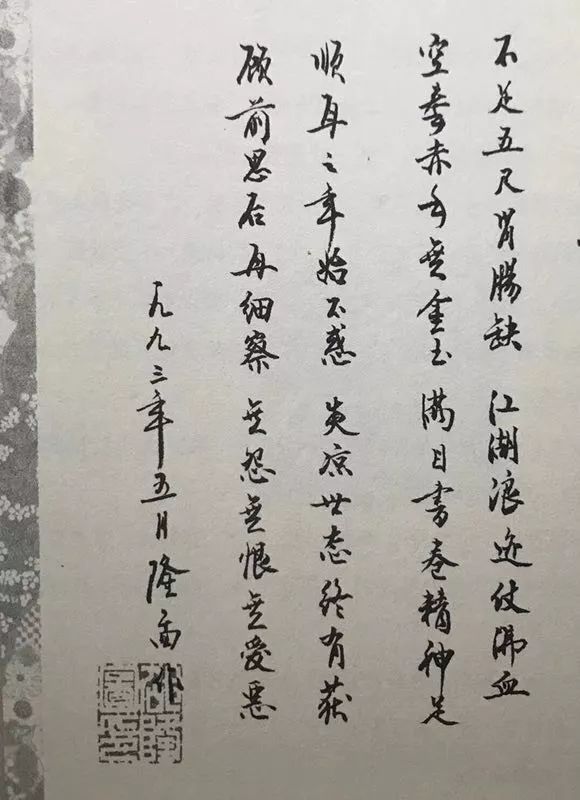 不足五尺胃肠缺 江湖浪迹仗肺血
空囊赤手无金玉 满目书卷精神足
顺耳之年始不惑 炎凉世态终有获
顾前思后再细察 无怨无恨无爱恶
一九九三年五月 隆